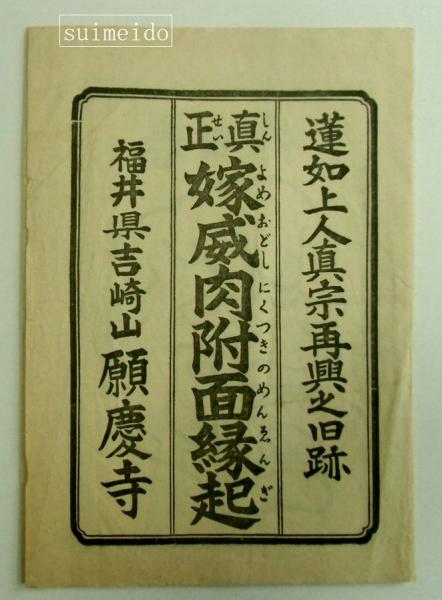 suimeido
蓮如上人真宗再興之旧跡
真正嫁威肉附面縁起
しんせいよめおどしにくつきのめんゑんぎ
福井県吉崎山願慶寺